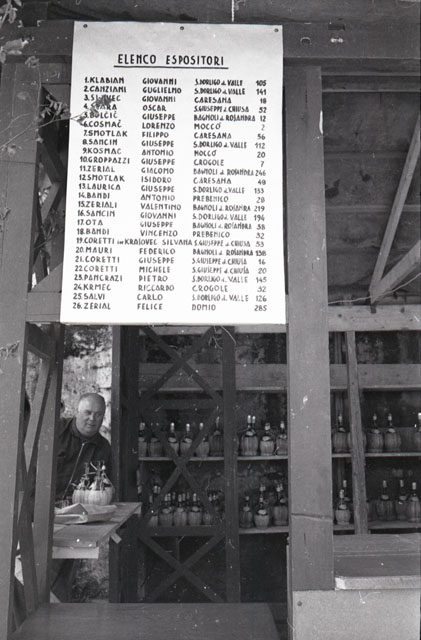 ELENCO ESPOSITORI
1. KLABIAN GIOVANNI S. DORLIGO d. VALLE 105
2. CANZIANI GUGLIELMO S. DORLIGO d. VALLE 141
3. SLAVEC GIOVANNI CARESANA 18
4. OSCAR S. GIUSEPPE d. CHIUSA 52
5. BOLČIČ GIUSEPPE BAGNOLI d. ROSANDRA 12
6. COSMAČ LORENZO MOCCO' 2
7. SMOTLAK FILIPPO CARESANA 56
8. SANCIN GIUSEPPE S. DORLIGO d. VALLE 112
9. KOSMAC ANTONIO MOCCO' 20
10. GROPPAZZI GIUSEPPE CROGOLE 7
11. ZERIAL GIACOMO BAGNOLI d. ROSANDRA 246
12. SMOTLAK ISIDORO CARESANA 49
13. LAURICA GIUSEPPE S. DORLIGO d. VALLE 133
14. BANDI ANTONIO PREBENICO 28
15. ZERIALI VALENTINO BAGNOLI d. ROSANDRA 219
16. SANCIN GIOVANNI S. DORLIGO d. VALLE 194
17. OTA GIUSEPPE BAGNOLI d. ROSANDRA 38
18. BANDI VINCENZO PREBENICO 32
19. CORETTI in KRAJOVEC SILVANA S. GIUSEPPE d. CHIUSA 53
20. MAURI FEDERICO BAGNOLI d. ROSANDRA 138
21. CORETTI GIUSEPPE S. GIUSEPPE d. CHIUSA 16
22. CORETTI MICHELE S. GIUSEPPE d. CHIUSA 20
23. PANCRAZI PIETRO S. DORLIGO d. VALLE 145
24. KRMEC RICCARDO CROGOLE 32
25. SALVI CARLO S. DORLIGO d. VALLE 126
26. ZERIAL FELICE DOMIO 285